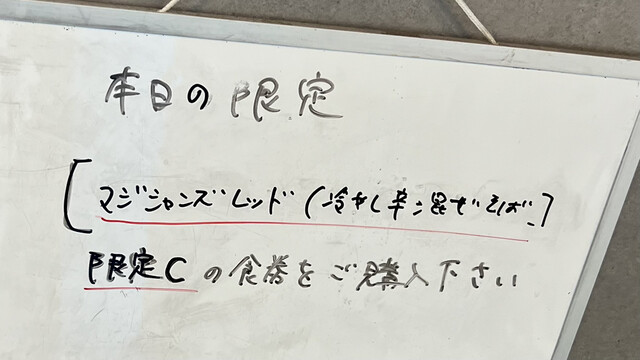 本日の限定
[マジシャンズレッド(冷やし辛混ぜそば)]
限定Cの食券をご購入下さい